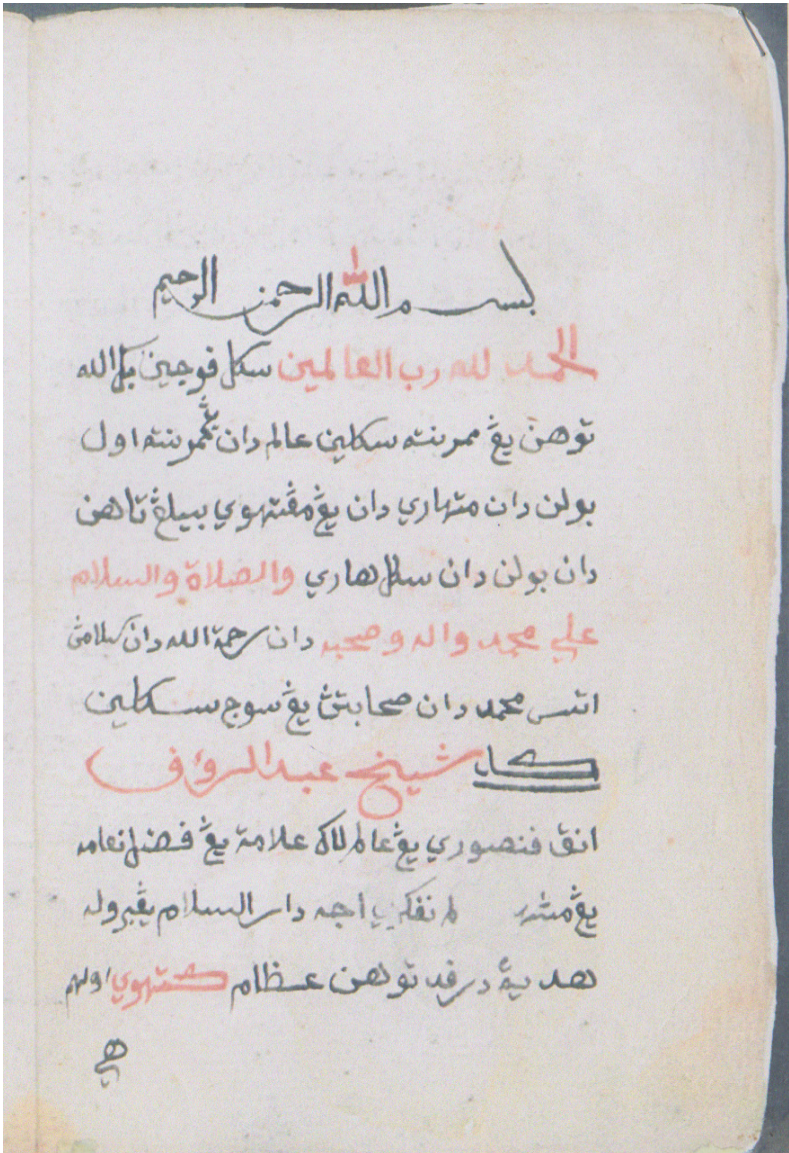 بسم الله الرحمن الرحيم
الحمد لله رب العالمين سكل فوجين بكي الله
توهن يڠ ممرنته سكلين عالم دان يڠ ممرنته اول
بولن دان متهاري دان يڠ مڠتهوي بيلڠ تاهن
دان بولن دان سكل هاري والصلاة والسلام
علي محمد واله وصحبه دان رحمة الله دان سلامڽ
اتس محمد دان صحابتڽ يڠ سوج سكلين
كات شيخ عبد الرؤف
انق فنصوري يڠ عالم لاݢ علامة يڠ فضل انعامه
يڠ اجه دار السلام يڠبروله
هدية درفد توهن عظام كتهوي اولهم
هي